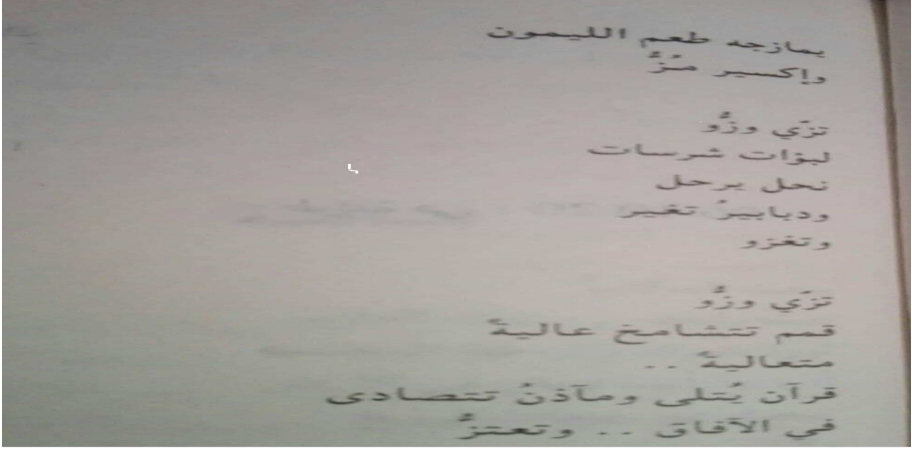 يمازجه طعم الليمون
وإكسير مُزُّ
تزّي وزُّو
لبؤات شرسات
نحل يرحل
ودبابيرُ تغير
وتغزو
تزّي وزُّو
قمم تتشامخ عاليةً
متعاليةً ..
قرآن يُتلى ومآذنُ تتصادى
في الآفاق .. وتعتزُّ